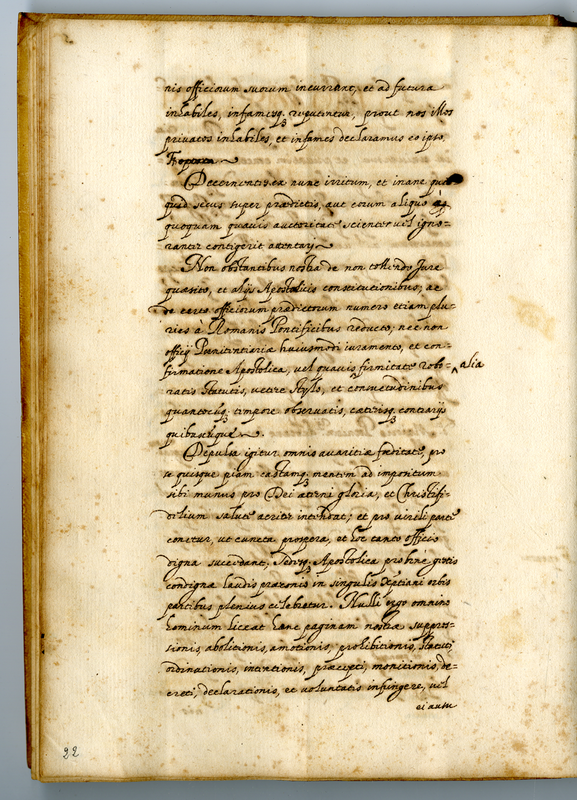 nis officiorum suorum incurrant, et ad futura
inhabiles, infamesq3 reputentur, prout nos illos
privatos inhabiles, et infames declaramus eo ipso,
Decernentes ex nunc irritum, et inane
quid secus super praedictis, aut eorum aliquo à
quoquam quavis auctoritate scienter vel igno=
ranter contigerit attentarj
Non obstantibus nostra de non tollendo Jure
quaesito, et alijs Apostolicis constitutionibus, ac
de certo officiorum praedictorum numero etiam plu=
ries à Romanis Pontificibus reducto; nec non
officij Poenitentiariae huiusmodi iuramento, et con=
firmatione Apostolica, vel quavis firmitate robo= alia
ratis statutis, vetere stylo, et consuetudinibus
quantocūq3 tempore observatis, caeterisq3 contrarijs
quibuscūque.
Depulsa igitur omnis avaritiae foeditate, pro
se quisque piam castamq3 mentem ad impositum
sibi munus pro Dei aeterni gloria, et Christifi=
delium salute acriter intendat, et pro virili parte
conetur, ut cuncta prospera, et hoc tanto officio
digna succedant, Sedisq3 Apostolicae probitae gratis
condignae laudis praeconio in singulis Xptiani orbis
partibus plenius celebretur. Nulli ergo omnino
hominum liceat hanc paginam nostrae suppres=
sionis, abolitionis, amotionis, prohibitionis, statuti
ordinationis, intentionis, praecepti, monitionis, de=
creti, declarationis, et voluntatis infringere, vel
ei ausu
22